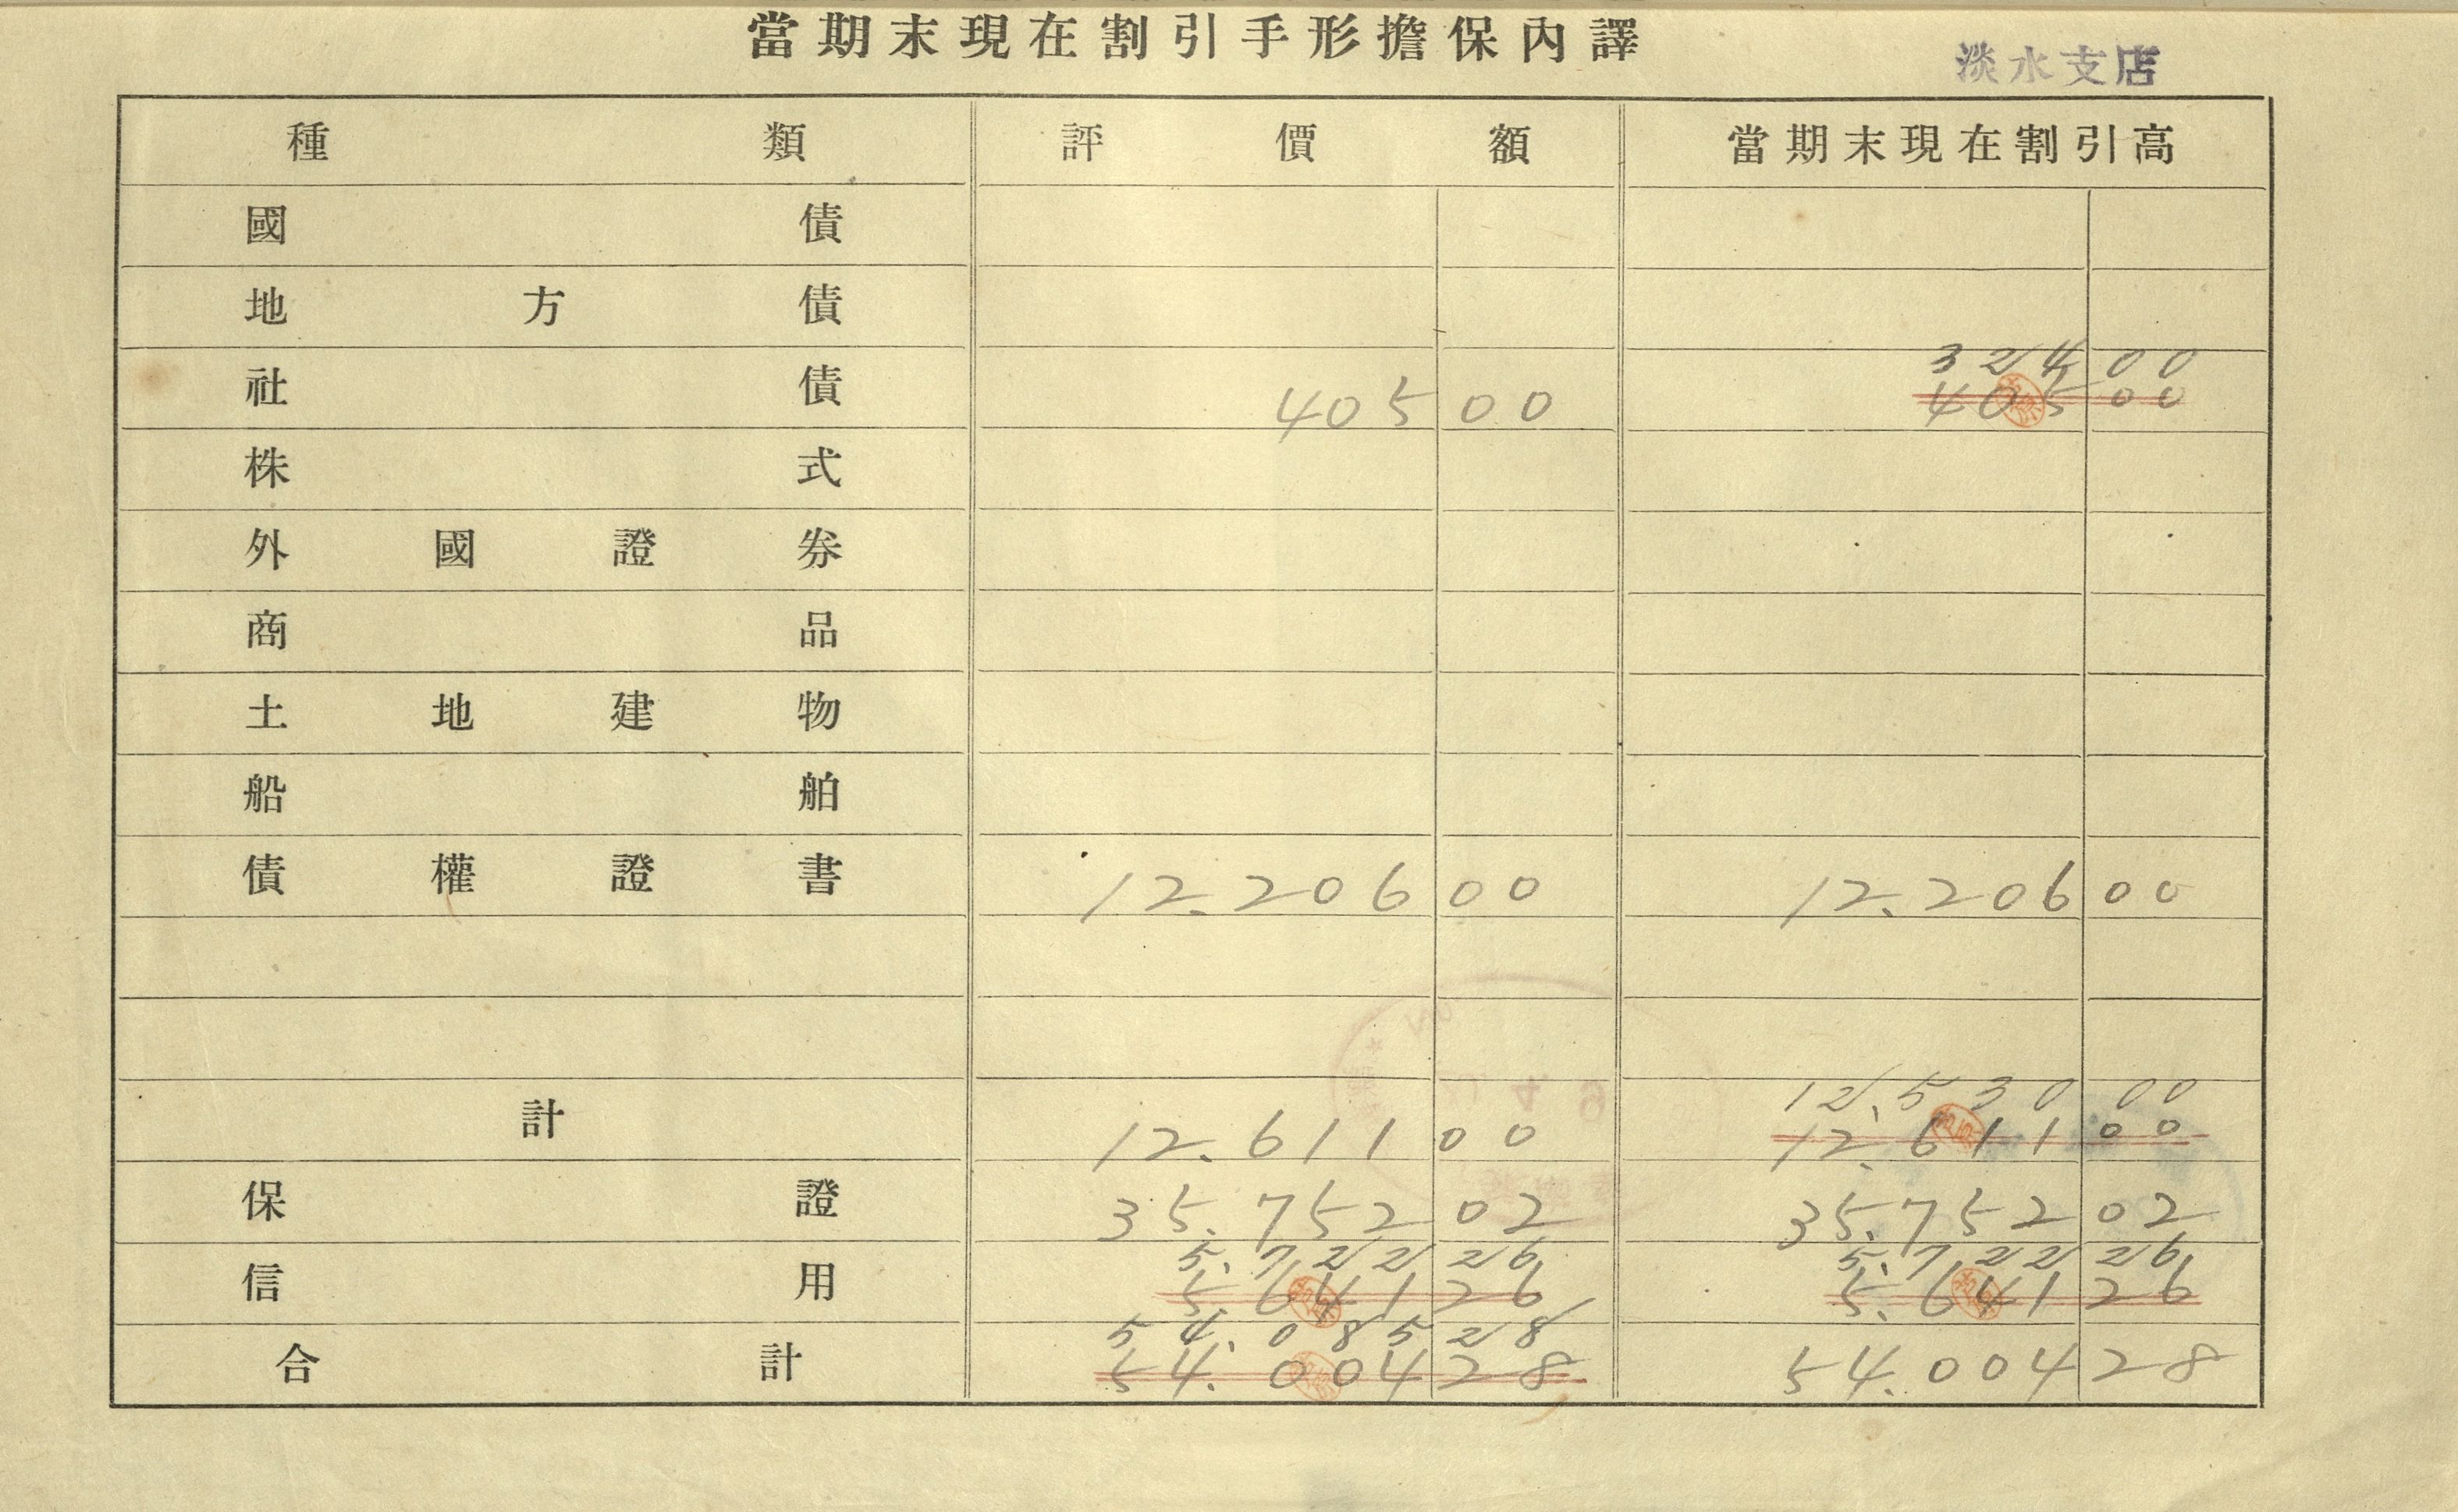 當期末現在割引手形擔保內譯
淡水支店
種類 評價額 當期末現在割引高
國債
地方債
324 00
社債 405 00 405 00
株式
外國證券
商品
土地建物
船舶
債權證書 12.206 00 12.206 00
12.530 00
計 12.611 00 12.611 00
保證 35.752 02 35.752 02
5.722 26 5.722 26
信用 5.641 26 5.641 26
54.085 28
合計 54.004 28 54.004 28